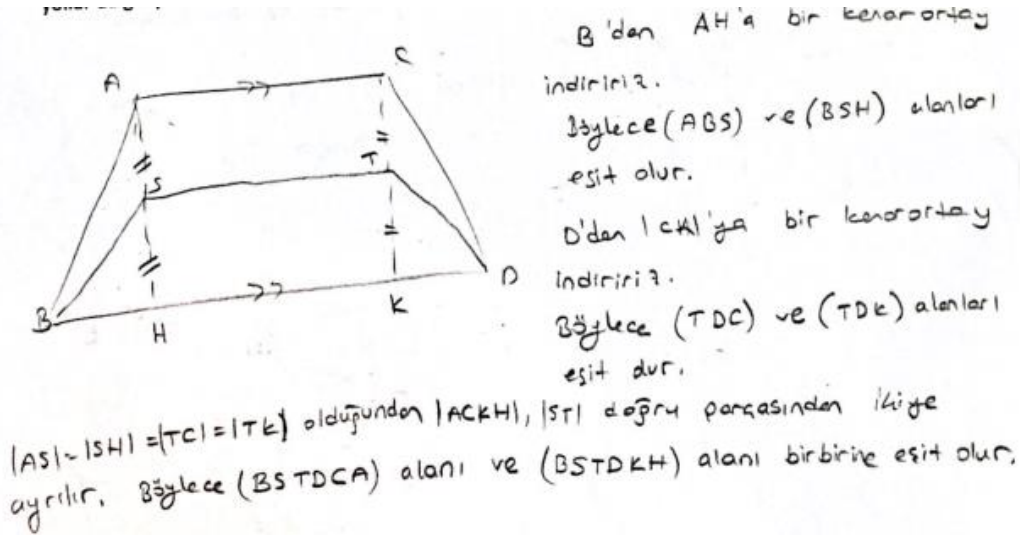 B'den AH'a bir kenarortay
indiririz.
Böylece (ABS) ve (BSH) alanları
eşit olur.
D'den |CK|'ya bir kenarortay
indiririz.
Böylece (TDC) ve (TDK) alanları
eşit dur.
A
C
S
T
B
H
K
D
|AS|=|SH|=|TC|=|TK| olduğundan |ACKH|, |ST| doğru parçasından ikiye
ayrılır. Böylece (BSTDCA) alanı ve (BSTDKH) alanı birbirine eşit olur.